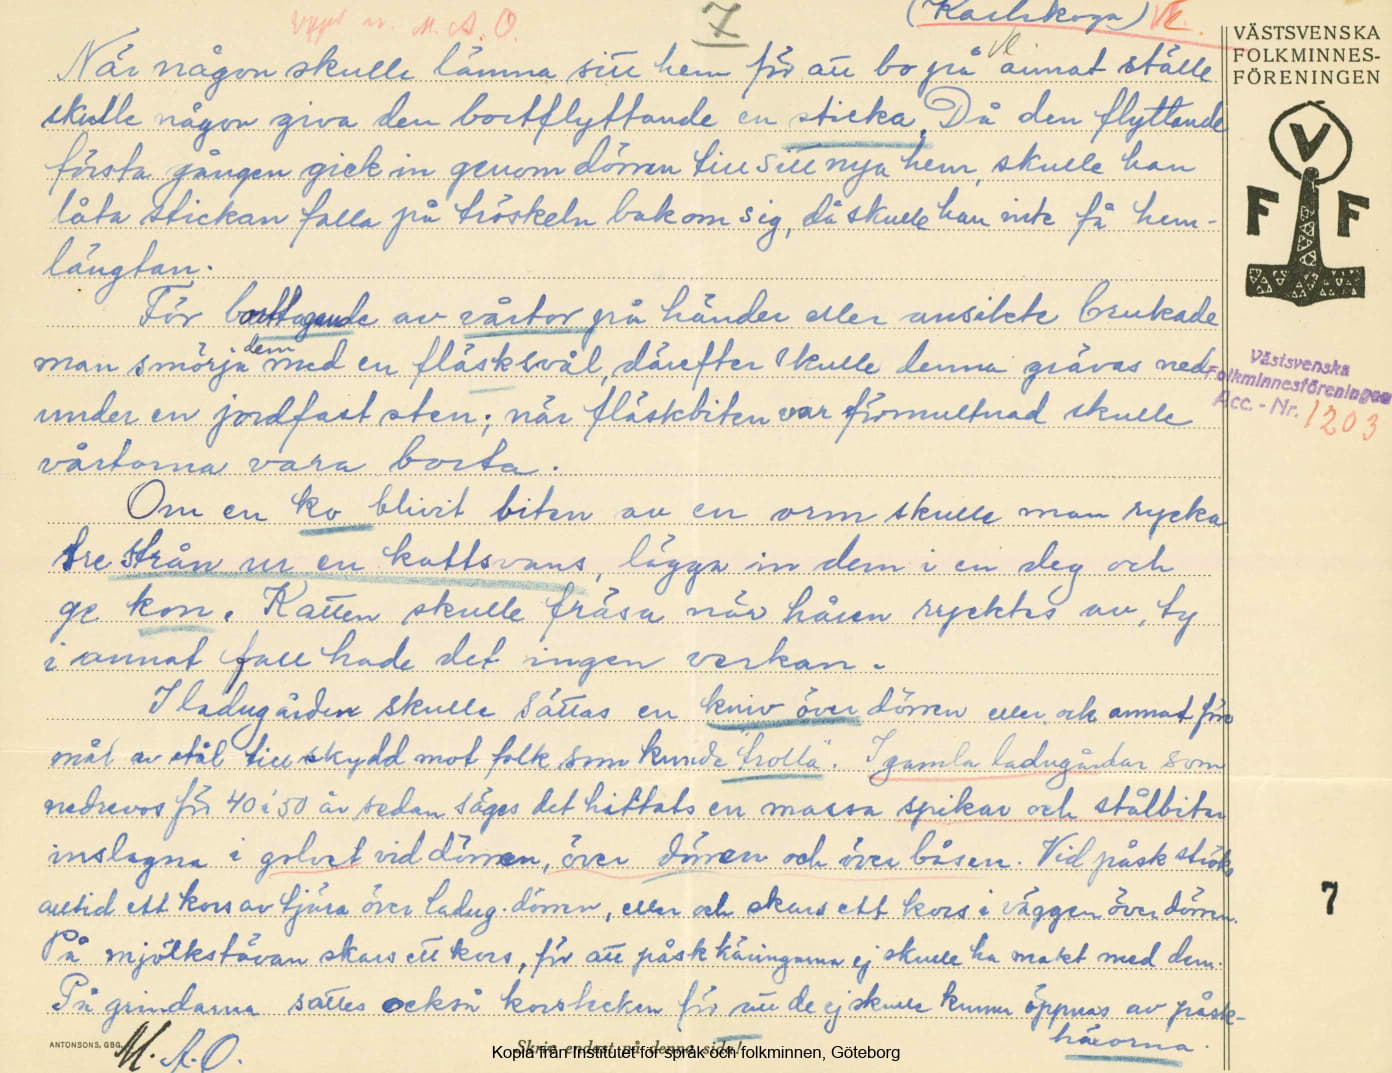 Uppt. av. M. A. O.
7
(Karlskoga) Vl.
Vl
VÄSTSVENSKA
FOLKMINNES-
FÖRENINGEN
V
F F
När någon skulle lämna sitt hem för att bo på annat ställe
skulle någon giva den bortflyttande en sticka. Då den flyttande
första gången gick in genom dörren till sitt nya hem, skulle han
låta stickan falla på tröskeln bakom sig, då skulle han inte få hem-
längtan.
För borttagende av vårtor på händer eller ansikte brukade
man smörja dem med en fläsksvål, därefter skulle denna grävas ned
under en jordfast sten; när fläskbiten var förmultnad skulle
vårtorna vara borta.
Västsvenska
Folkminnesföreningen
Acc. - Nr. 1203
Om en ko blivit biten av en orm skulle man rycka
tre strån ur en kattsvans, lägga in dem i en deg och
ge kon. Katten skulle fräsa när håren rycktes av, ty
i annat fall hade det ingen verkan.
I ladugården skulle sättas en kniv över dörren eller ock annat före
mål av stål till skydd mot folk som kunde "trolla". I gamla ladugårdar som
nedrevos för 40 à 50 år sedan säges det hittats en massa spikar och stålbitar
inslagna i golvet vid dörren, över dörren och över båsen. Vid påsk ströks
alltid ett kors av tjära över ladug.dörren, eller ock skars ett kors i väggen över dörren.
På mjölkstävan skars ett kors, för att påskkäringarna ej skulle ha makt med dem.
På grindarna sattes också korstecken för att de ej skulle kunna öppnas av påsk-
häxorna.
7
ANTONSONS, GBG.
M. A. O.
Skriv endast på denna sida!
Kopia från Institutet för språk och folkminnen, Göteborg